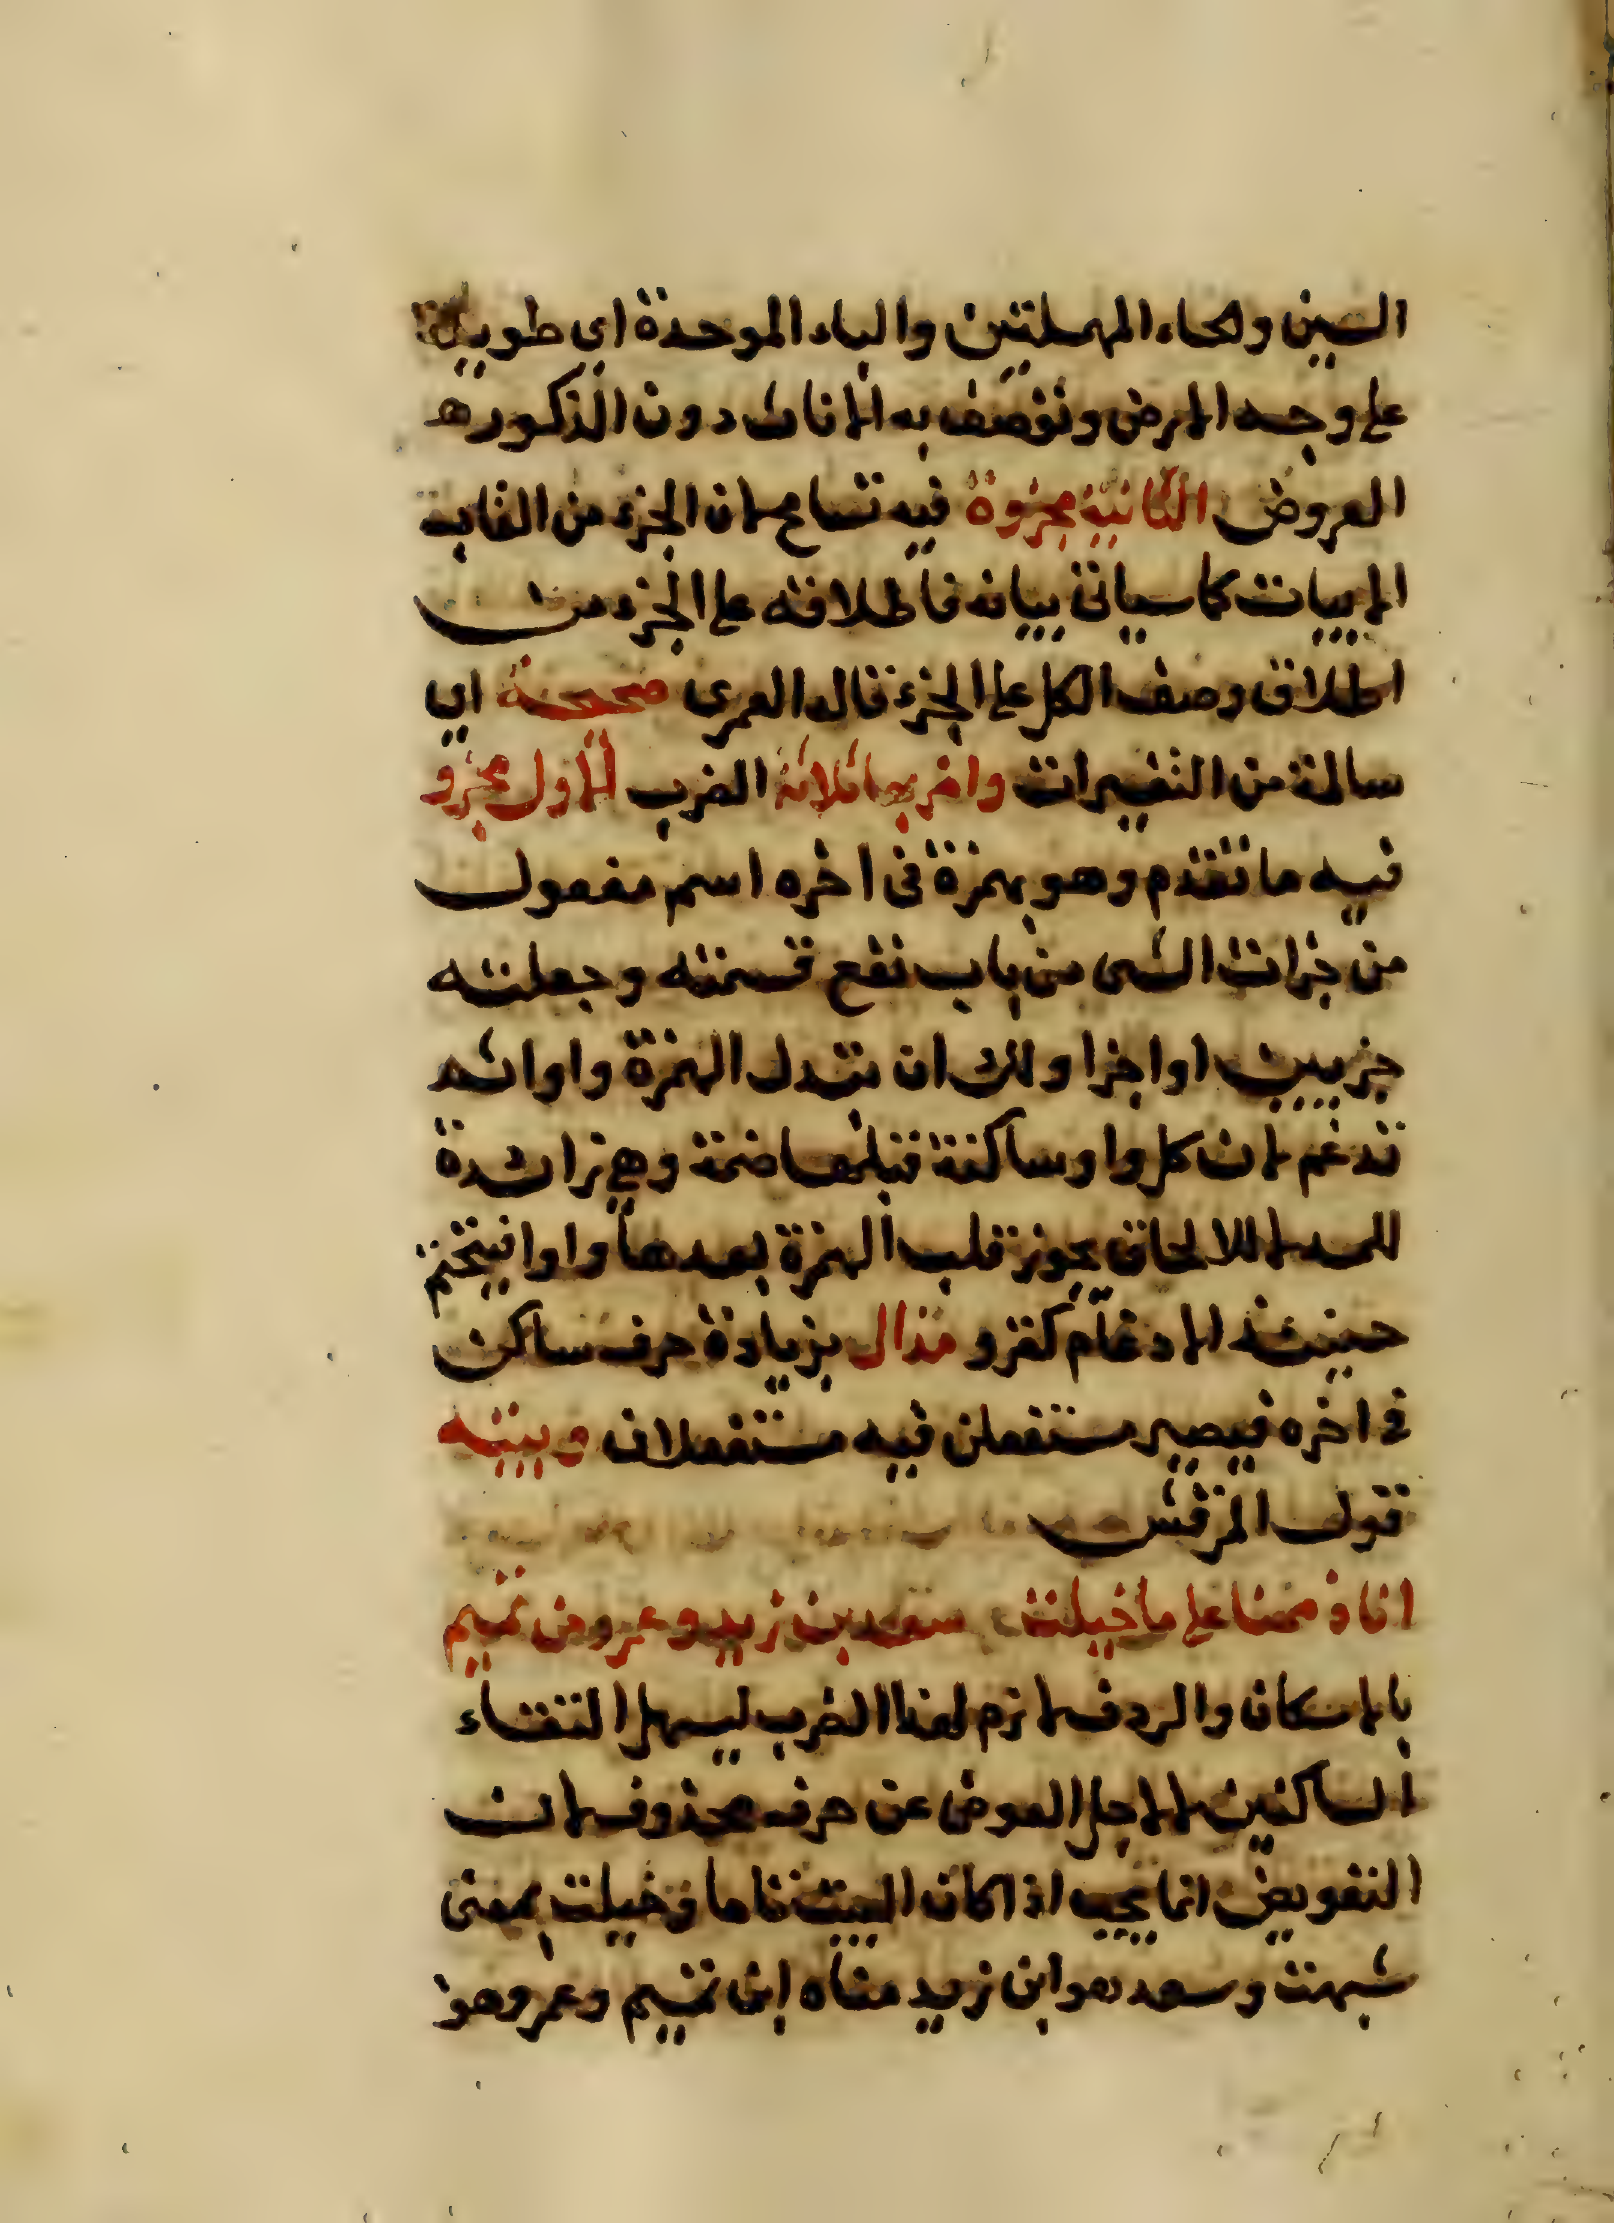 السين والحاء المهملتين والباء الموحدة اي طويلة
على وجه الارض وتوصف به الاناث دون الذكور ه
العروض الثانية مجزوة فيه تسامح لان الجزء من القاب
الابيات كما سياتي بيانه فاطلاقه على الجزء من
اطلاق وصف الكل على الجزء قاله العمري صحيحة اي
سالمة من التغييرات واضربها ثلاثة الضرب الاول مجزو
فيه ما تقدم وهو بهمزة في اخره اسم مفعول
من جزات الشي من باب نفع قسمته وجعلته
جزيين او اجزا ولك ان تبدل الهمزة واوا ثم
تدغم لان كل واو ساكنة قبلها ضمة وهي زائدة
للمد لا للالحاق يجوز قلب الهمزة بعدها واوا فيتحتم
حينئذ الادغام كقرو مذال بزيادة حرف ساكن
في اخره فيصير مستفعلن فيه مستفعلان وبيته
قول المرقش
انا ذممنا على ما خيلت سعد بن زيد وعمرو من تميم
بالاسكان والردف لازم لهذا الضرب ليسهل التقاء
الساكنين لا لاجل العوض عن حرف محذوف لان
التعويض انما يجب اذا كان البيت تاما وخيلت بمعنى
شبهت وسعد هو ابن زيد مناه ابن تميم وعمرو هو